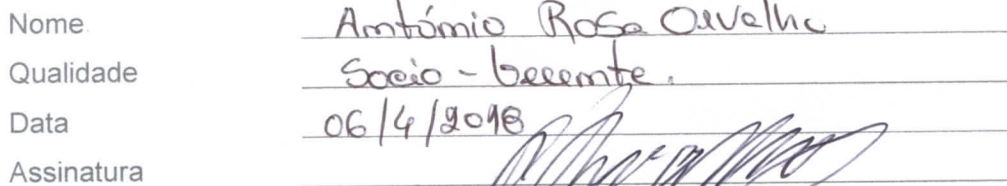 Nome António Rosa Orvalho
Qualidade Socio - Gerente.
Data 06/4/2018
Assinatura